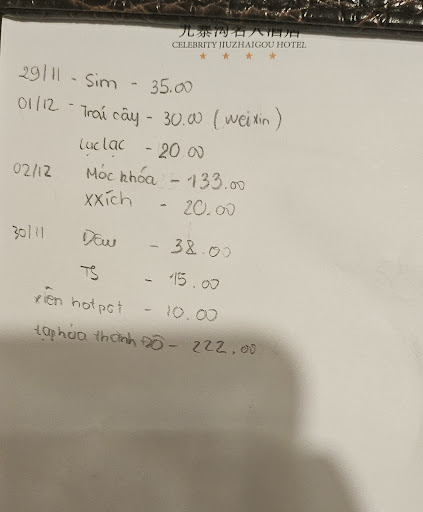 九寨沟名人酒店
CELEBRITY JIUZHAIGOU HOTEL
29/11 - Sim - 35.00
01/12 - Trái cây - 30.00 (weixin)
lục lạc - 20.00
02/12 Móc khóa - 133.00
xxích - 20.00
30/11 - 38.00
TS - 15.00
xiên hotpot - 10.00
tạp hóa thành Đô - 222.00